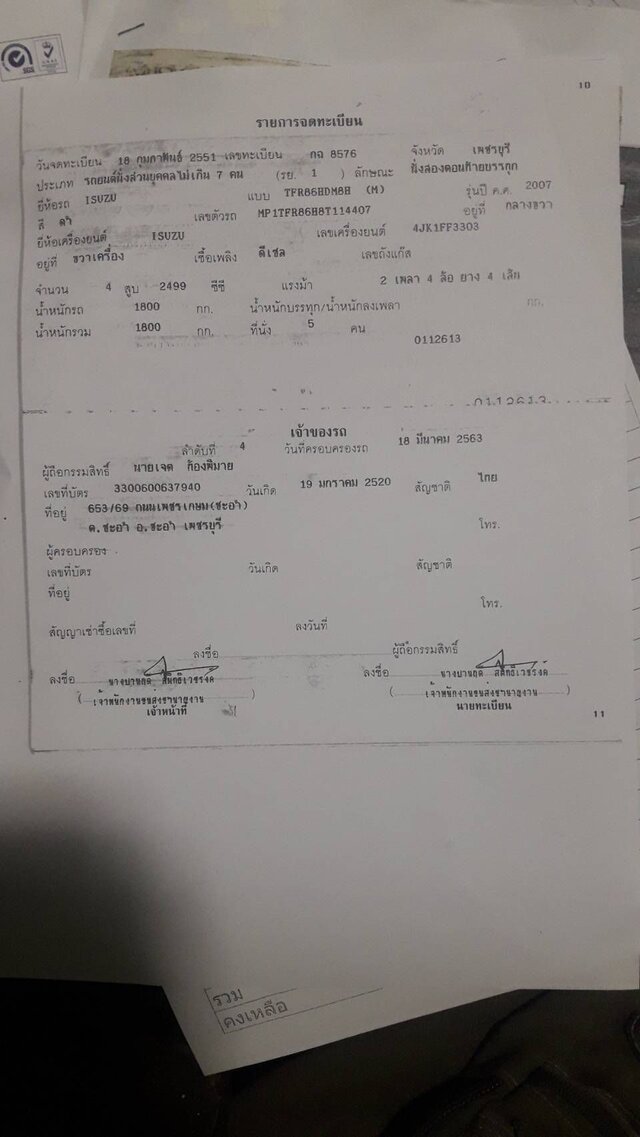 SGS
10
รายการจดทะเบียน
วันจดทะเบียน 18 กุมภาพันธ์ 2551 เลขทะเบียน กฉ 8576 จังหวัด เพชรบุรี
ประเภท รถยนต์นั่งส่วนบุคคลไม่เกิน 7 คน (รย. 1 ) ลักษณะ นั่งสองตอนท้ายบรรทุก
ยี่ห้อรถ ISUZU แบบ TFR86HDM8H (M) รุ่นปี ค.ศ. 2007
สี ดำ เลขตัวรถ MP1TFR86H8T114407 อยู่ที่ กลางขวา
ยี่ห้อเครื่องยนต์ ISUZU เลขเครื่องยนต์ 4JK1FF3303
อยู่ที่ ขวาเครื่อง เชื้อเพลิง ดีเซล เลขถังแก๊ส
จำนวน 4 สูบ 2499 ซีซี แรงม้า 2 เพลา 4 ล้อ ยาง 4 เส้น
น้ำหนักรถ 1800 กก. น้ำหนักบรรทุก/น้ำหนักลงเพลา กก.
น้ำหนักรวม 1800 กก. ที่นั่ง 5 คน
0112613
0112613
เจ้าของรถ
ลำดับที่ 4 วันที่ครอบครองรถ 18 มีนาคม 2563
ผู้ถือกรรมสิทธิ์ นายเจด ก้องพิมาย
เลขที่บัตร 3300600637940 วันเกิด 19 มกราคม 2520 สัญชาติ ไทย
ที่อยู่ 653/69 ถนนเพชรเกษม(ชะอำ)
ต.ชะอำ อ.ชะอำ เพชรบุรี โทร.
ผู้ครอบครอง
เลขที่บัตร วันเกิด สัญชาติ
ที่อยู่
โทร.
สัญญาเช่าซื้อเลขที่ ลงวันที่
ลงชื่อ ผู้ถือกรรมสิทธิ์
ลงชื่อ ลงชื่อ
(เจ้าพนักงานขนส่งชำนาญงาน) (เจ้าพนักงานขนส่งชำนาญงาน)
เจ้าหน้าที่ นายทะเบียน
11
รวม
คงเหลือ